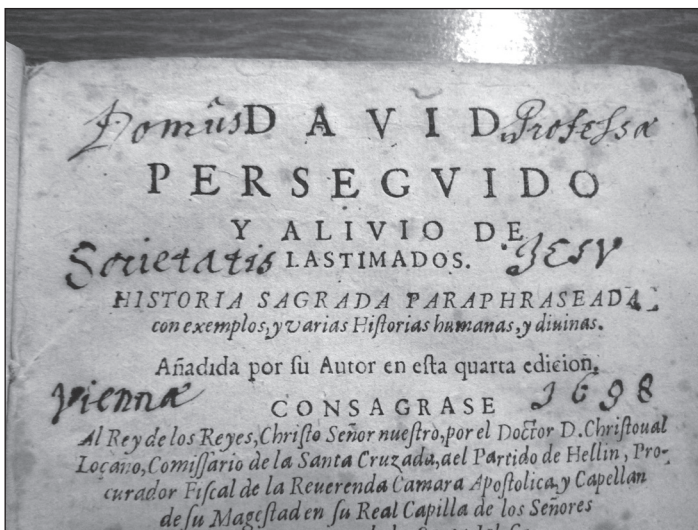 Domûs DAVID Professæ
PERSEGVIDO
Y ALIVIO DE
Societatis LASTIMADOS. JESV
HISTORIA SAGRADA PARAPHRASEADA,
con exemplos, y varias Hiſtorias humanas, y diuinas.
Añadida por ſu Autor en eſta quarta edicion,
Viennæ CONSAGRASE 1698
Al Rey de los Reyes, Chriſto Señor nueſtro, por el Doctor D. Chriſtoual
Loçano, Comiſſario de la Santa Cruzada, del Partido de Hellin, Pro-
curador Fiſcal de la Reuerenda Camara Apoſtolica, y Capellan
de ſu Mageſtad en ſu Real Capilla de los Señores